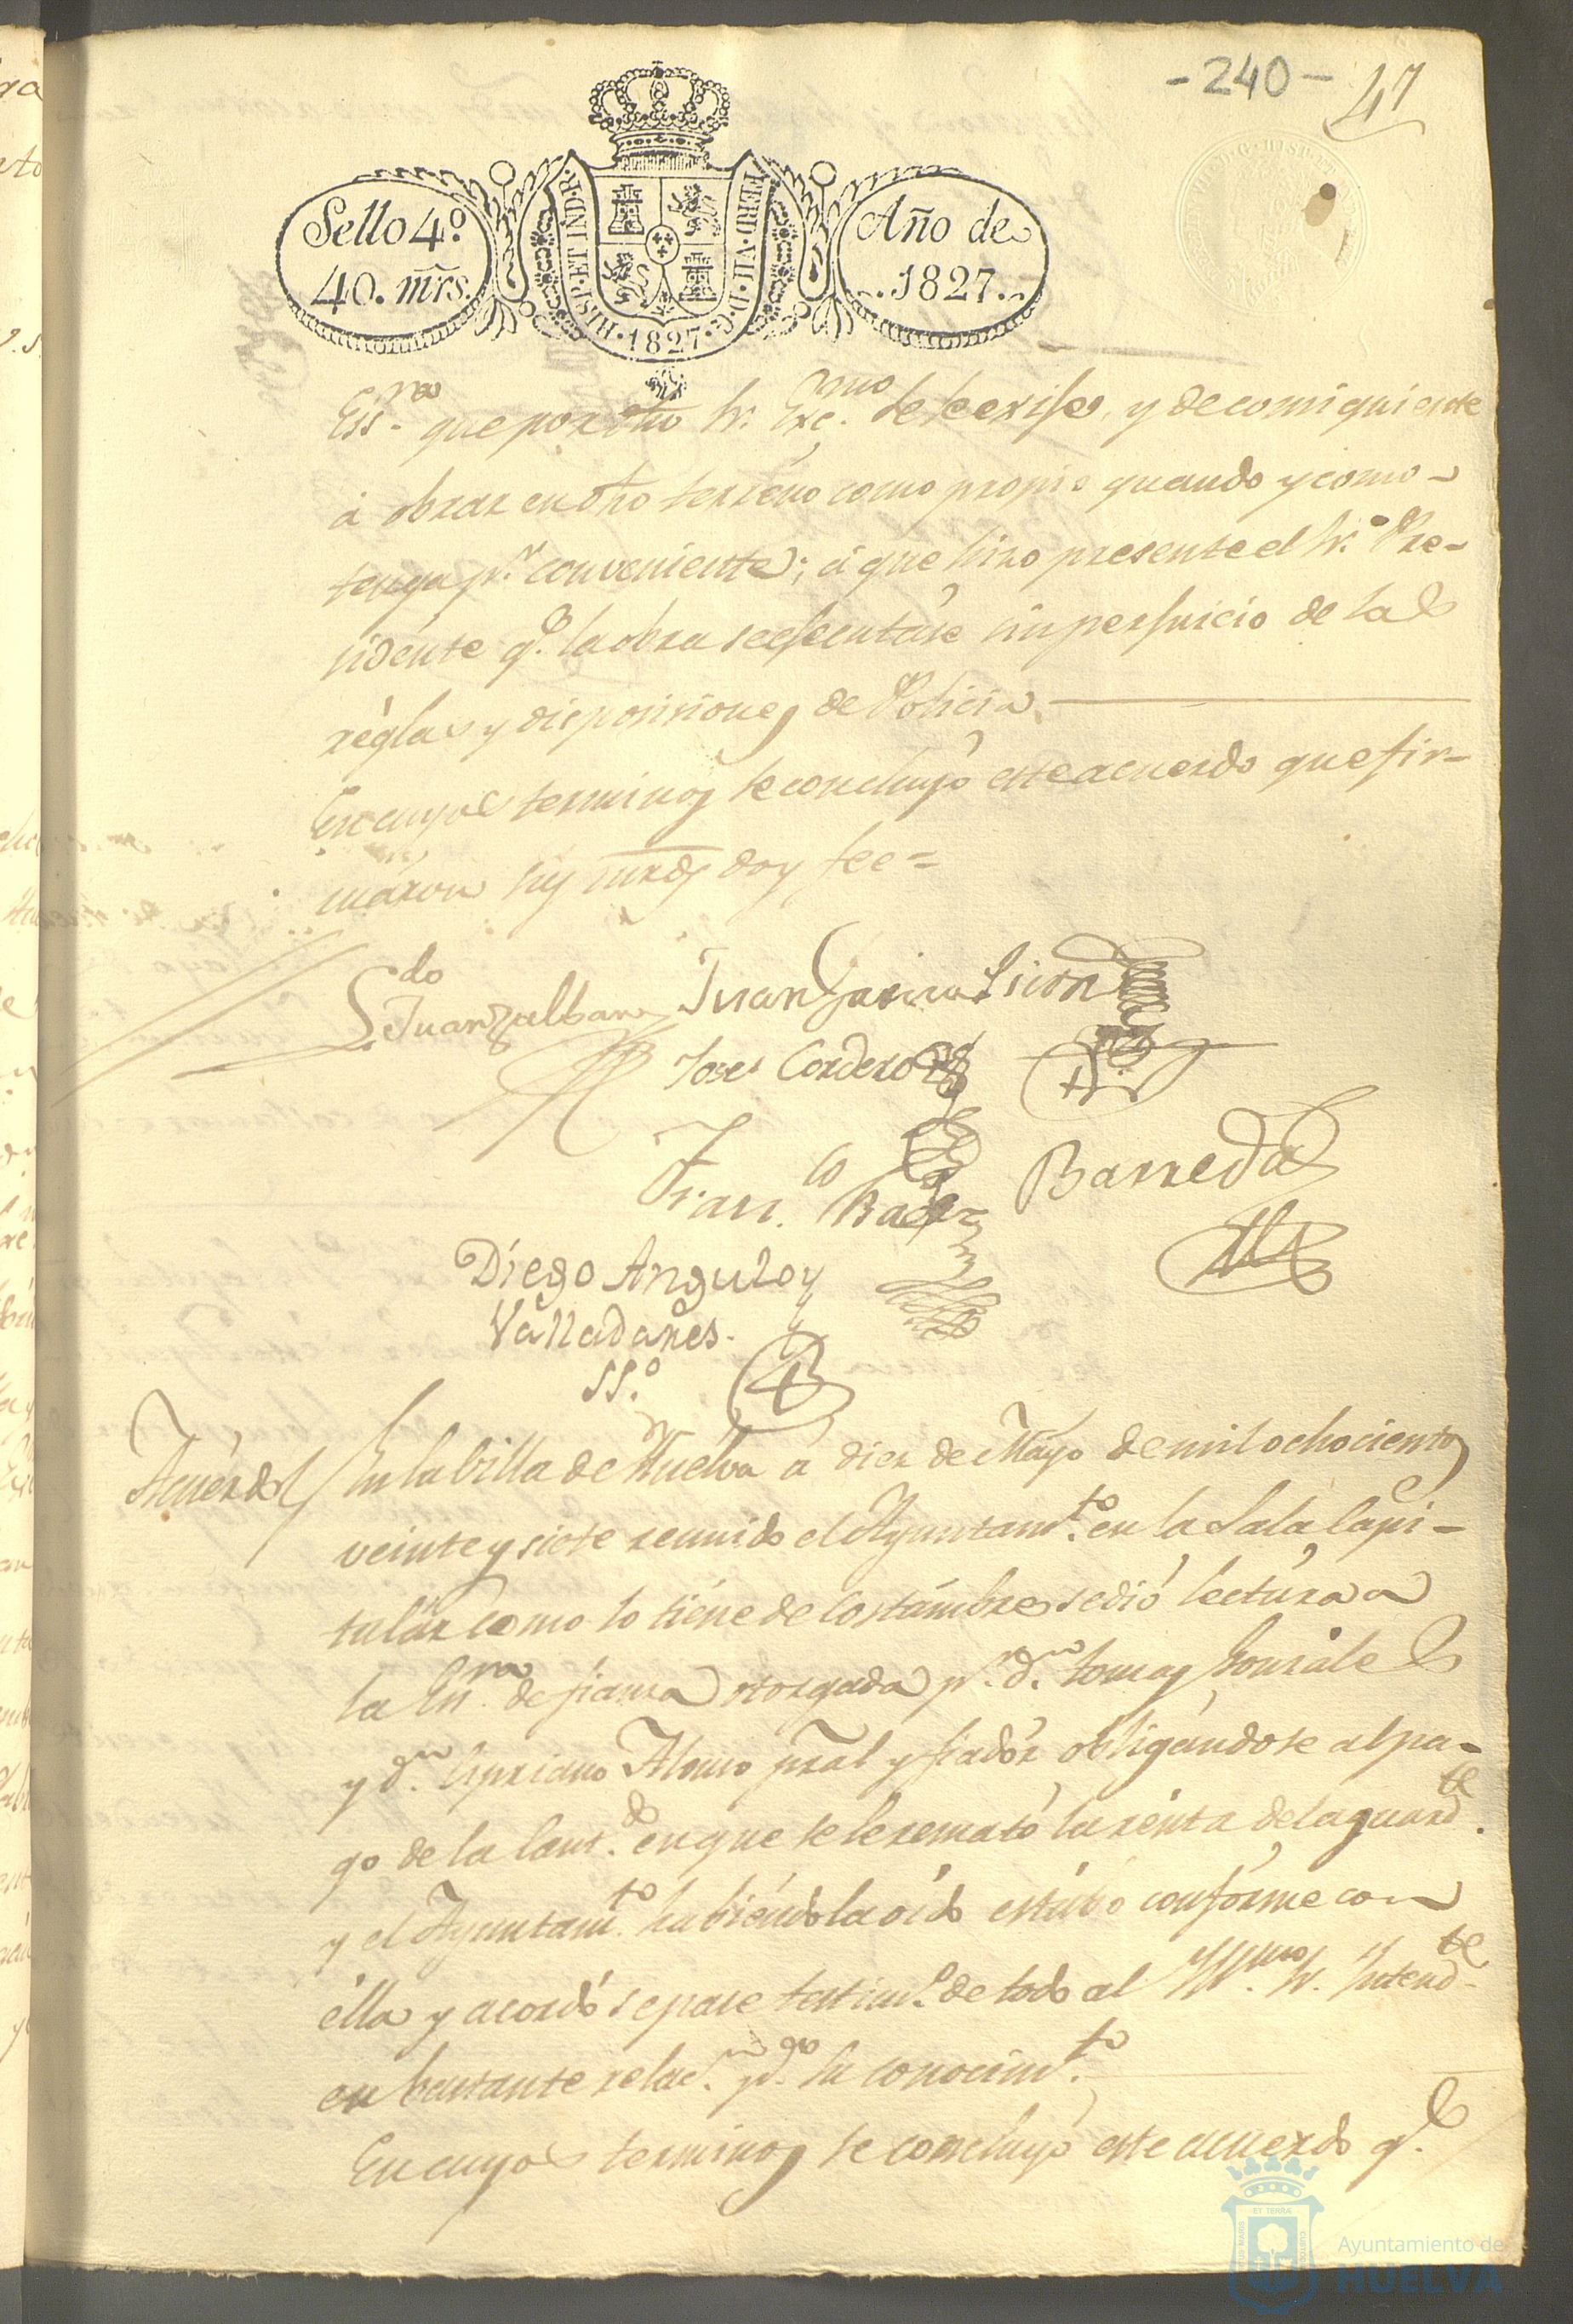 -240-
47
Sello 4º.
40. mr̃s.
HISP. ET IND. R.
FERD. VII. D. G.
1827
Año de
1827.
Ess.ra que por dho Sr. Exc.mo se le exije, y de consiguiente
á obrar en dho terreno como propio quando y como
tenga p.r conveniente; á que hizo presente el Sr. Pre-
sidente q.e la obra se ejecutáse sin perjuicio de las
réglas y disposisiones de Policia
En cuyos terminos se concluyó este acuerdo que fir-
máron sus mrds doy fee=
L.do Juan
Juan Garcia
Jose Cordero
Fran.co
Barreda
Diego Angulo y
Valladares.
SS.º
Acuérdo
En la billa de Huelva á diez de Mayo de mil ochocientos
veinte y siete reunido el Ayuntam.to en la Sala Capi-
tulár como lo tiéne de costúmbre se dió lectúra a
la Es.ra de fianza otorgada p.r d.n Tomas Gonzáles
y d.n Cipriano Alonso pral y fiadór obligándose al pa-
go de la cant.do en que se le remató la rénta del aguard.te
y el Ayuntam.to habiéndola oído estúbo confórme con
élla y acordó se pase testim.º de todo al Yll.mo Sr. Yntend.te
en bastante relac.n p.a su conocim.to
En cuyos terminos se concluyó este acuerdo q.e
Ayuntamiento de
HUELVA